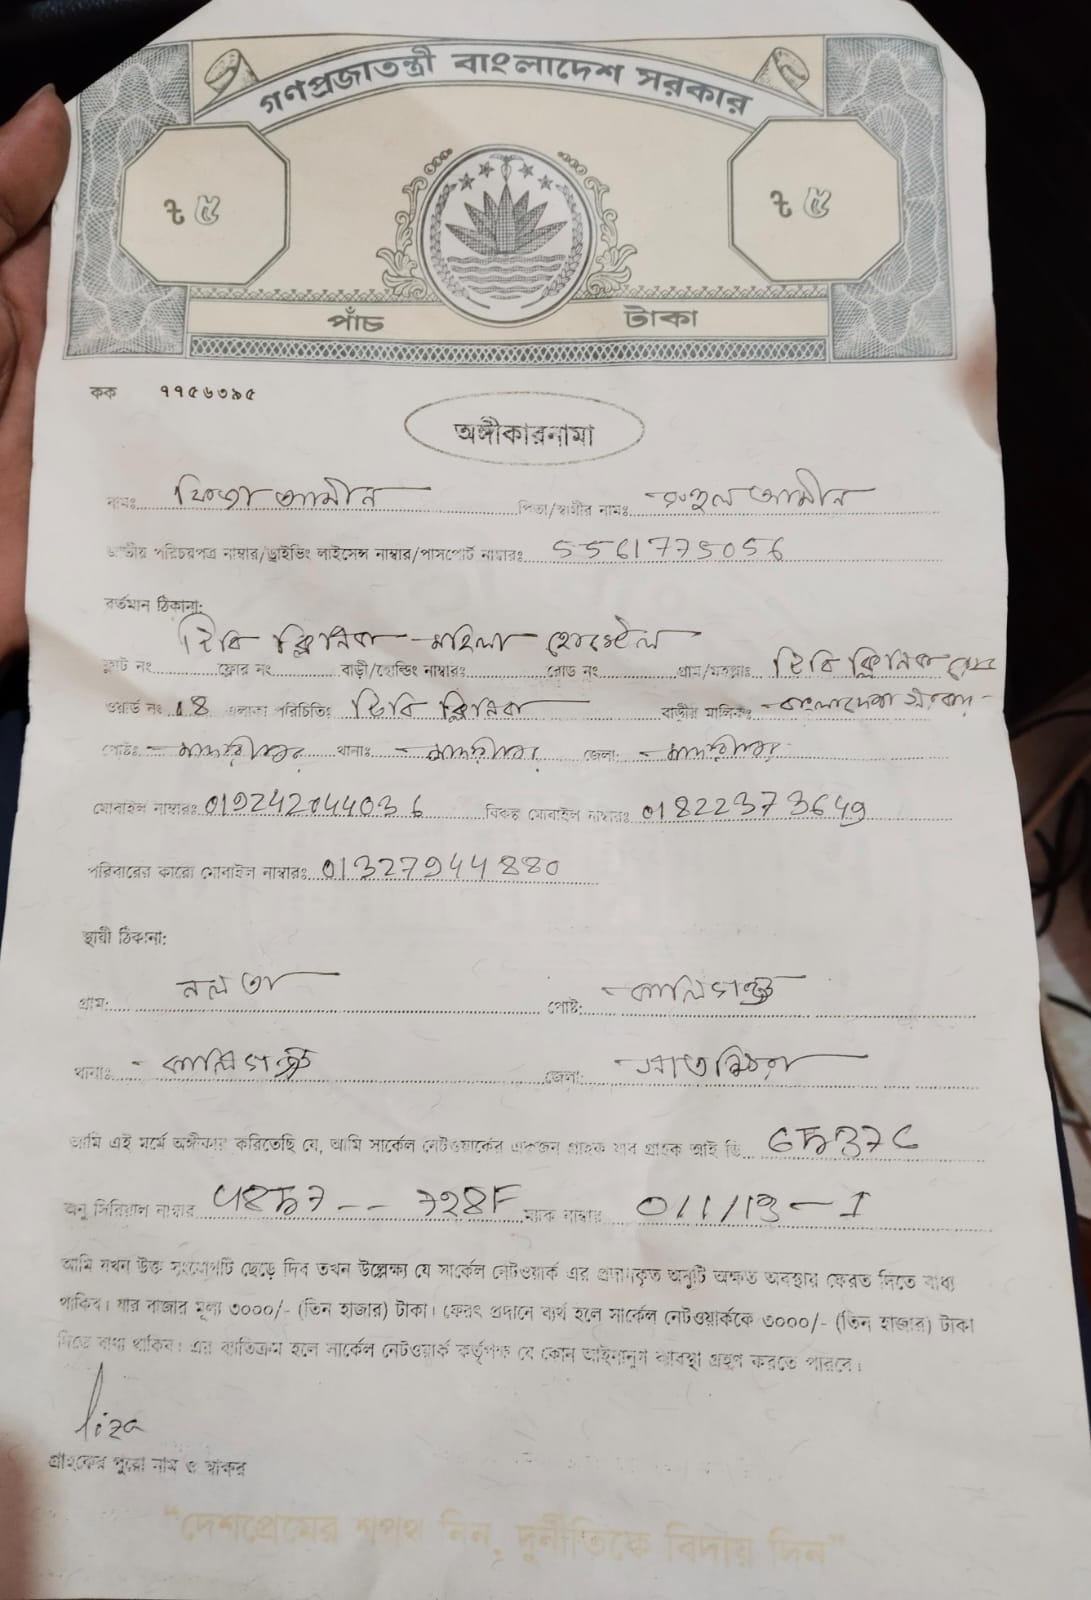 গণপ্রজাতন্ত্রী বাংলাদেশ সরকার
৳ ৫ ৳ ৫
পাঁচ টাকা
কক ৭৭৫৬৩৯৫
অঙ্গীকারনামা
নামঃ আমীন পিতা/স্বামীর নামঃ রুহুল আমীন
জাতীয় পরিচয়পত্র নাম্বার/ড্রাইভিং লাইসেন্স নাম্বার/পাসপোর্ট নাম্বারঃ 5561775056
বর্তমান ঠিকানা:
টিবি ক্লিনিক মহিলা হোস্টেল
ফ্লাট নং ফ্লোর নং বাড়ী/হোল্ডিং নাম্বারঃ রোড নং গ্রাম/মহল্লাঃ টিবি ক্লিনিক রোড
ওয়ার্ড নং এলাকা পরিচিতিঃ টিবি ক্লিনিক বাড়ীর মালিকঃ বাংলাদেশ সরকার
পোষ্টঃ মাদারীপুর থানাঃ মাদারীপুর জেলা: মাদারীপুর
মোবাইল নাম্বারঃ 019242044036 বিকল্প মোবাইল নাম্বারঃ 01822373649
পরিবারের কারো মোবাইল নাম্বারঃ 01327944880
স্থায়ী ঠিকানা:
গ্রাম: নলতা পোষ্ট: কালিগঞ্জ
থানাঃ কালিগঞ্জ জেলা: সাতক্ষিরা
আমি এই মর্মে অঙ্গীকার করিতেছি যে, আমি সার্কেল নেটওয়ার্কের একজন গ্রাহক যার গ্রাহক আই ডি
অনু সিরিয়াল নাম্বার ম্যাক নাম্বার
আমি যখন উক্ত সংযোগটি ছেড়ে দিব তখন উল্লেক্ষ্য যে সার্কেল নেটওয়ার্ক এর প্রদানকৃত অনুটি অক্ষত অবস্থায় ফেরত দিতে বাধ্য
থাকিব। যার বাজার মূল্য ৩০০০/- (তিন হাজার) টাকা। ফেরৎ প্রদানে ব্যর্থ হলে সার্কেল নেটওয়ার্ককে ৩০০০/- (তিন হাজার) টাকা
দিতে বাধ্য থাকিব। এর ব্যতিক্রম হলে সার্কেল নেটওয়ার্ক কর্তৃপক্ষ যে কোন আইনানুগ ব্যবস্থা গ্রহণ করতে পারবে।
liza
গ্রাহকের পুরো নাম ও স্বাক্ষর
“দেশপ্রেমের শপথ নিন, দুর্নীতিকে বিদায় দিন”